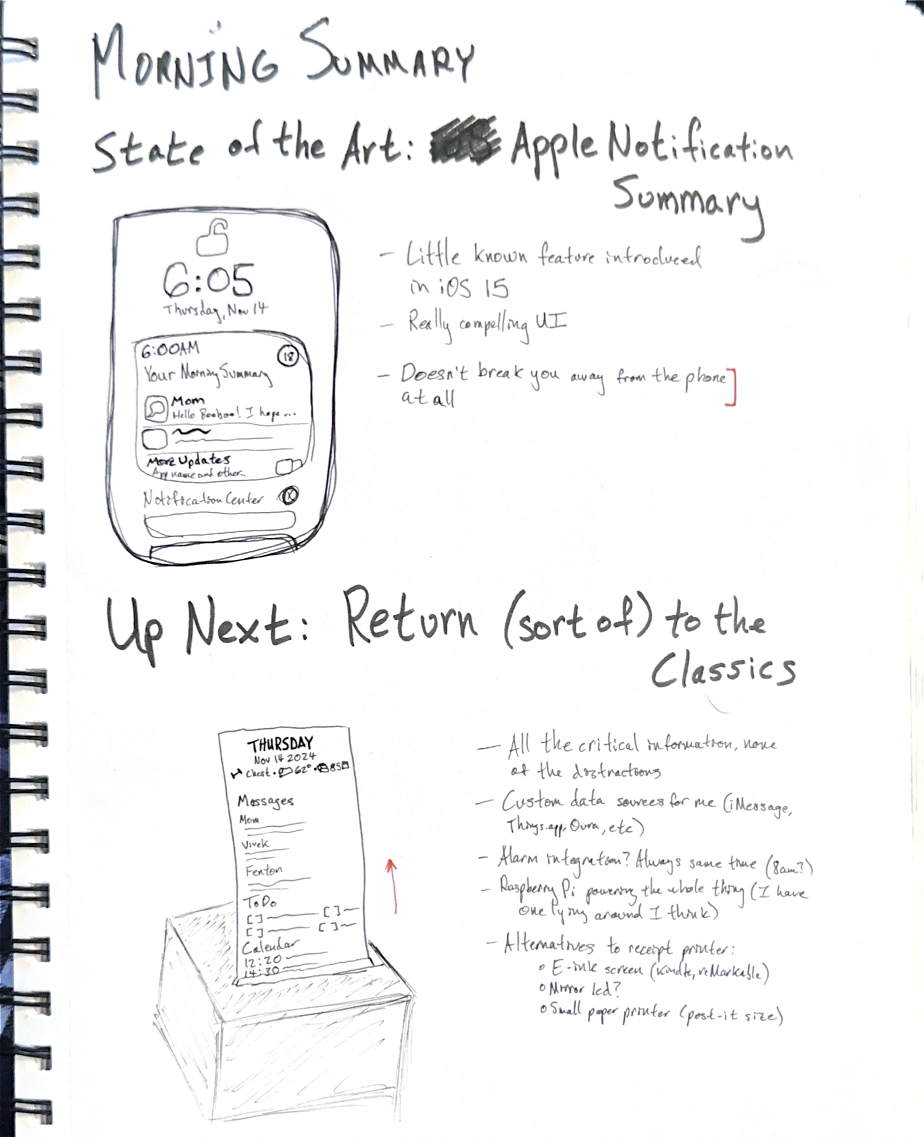 MORNING SUMMARY
State of the Art: Apple Notification
Summary
6:05
Thursday, Nov 14
6:00AM
18
Your Morning Summary
Mom
Hello Booboo! I hope ...
More Updates
App name and other
Notification Center
X
- Little known feature introduced
in iOS 15
- Really compelling UI
- Doesn't break you away from the phone]
at all
Up Next: Return (sort of) to the
Classics
THURSDAY
Nov 14 2024
Chest • 62° • 85
Messages
Mom
Vivek
Fenton
ToDo
[ ] [ ]
[ ] [ ]
Calendar
12:20
14:30
- All the critical information, none
of the distractions
- Custom data sources for me (iMessage,
Things.app, Oura, etc)
- Alarm integration? Always same time (8am?)
- Raspberry Pi powering the whole thing (I have
one lying around I think)
- Alternatives to receipt printer:
o E-ink screen (Kindle, reMarkable)
o Mirror lcd?
o Small paper printer (post-it size)